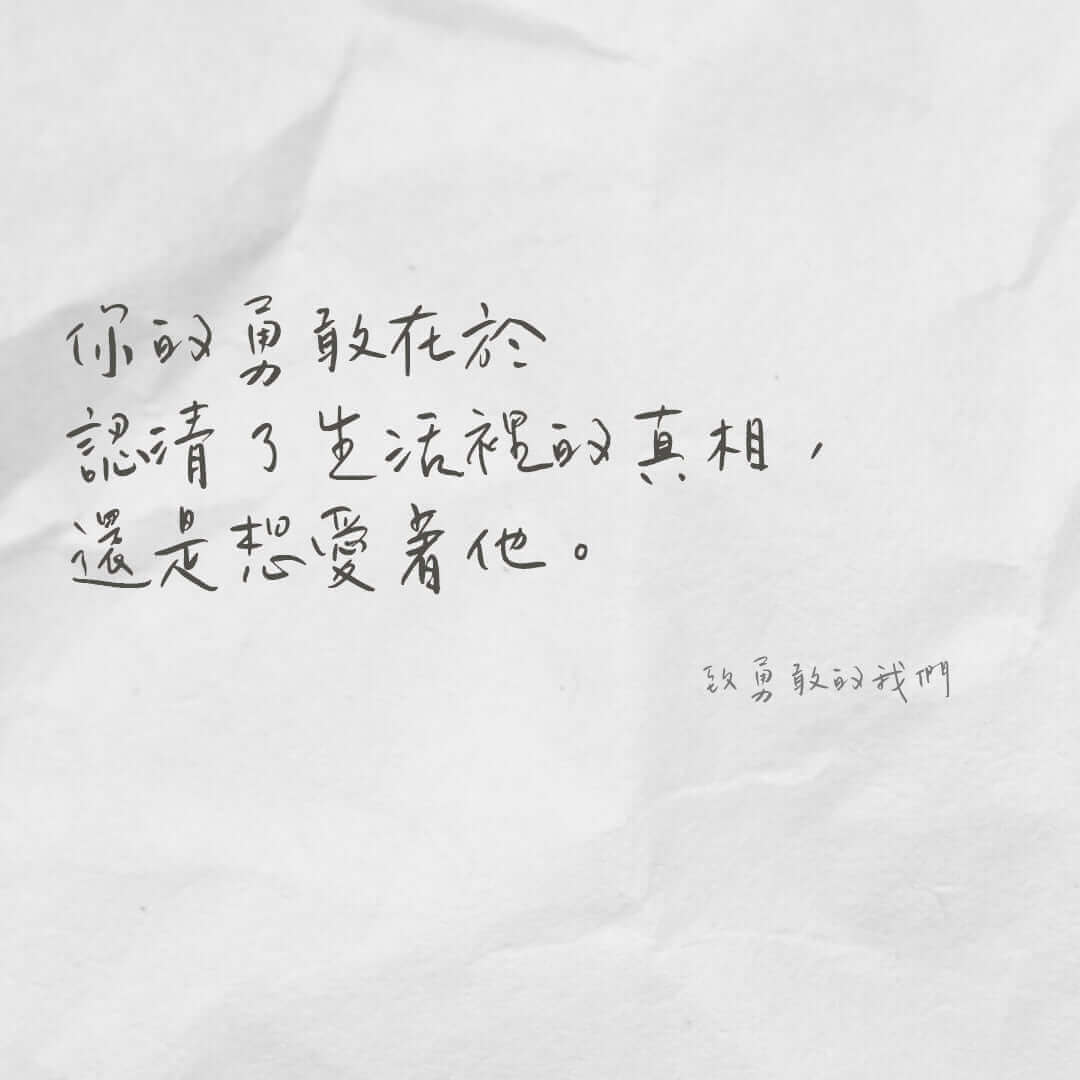 你的勇敢在於
認清了生活裡的真相，
還是想愛著他。
致勇敢的我們